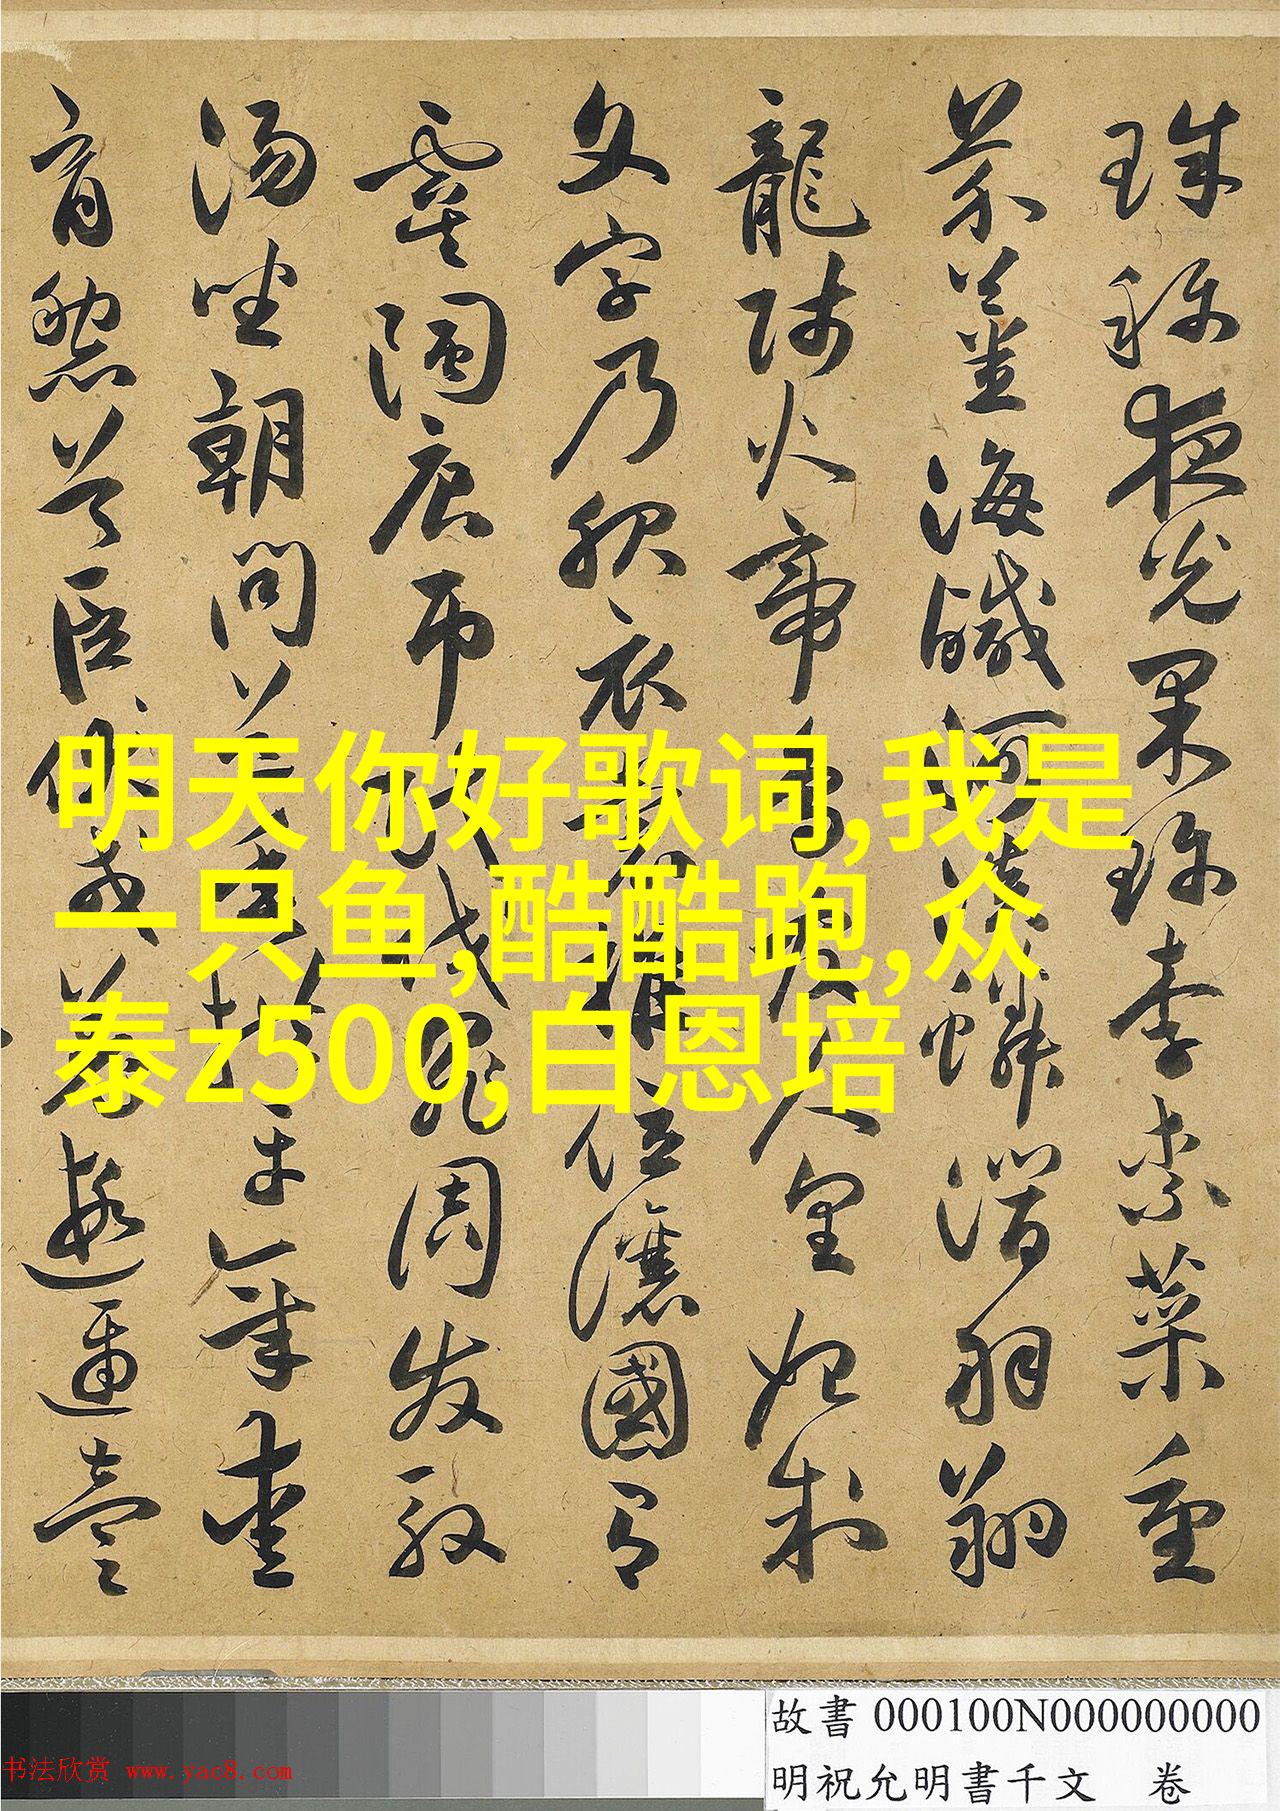 珠称夜光果珍李柰菜重
芥薑海鹹河淡鱗潛羽翔
龍師火帝鳥官人皇始制
文字乃服衣裳推位讓國有
虞陶唐弔民伐罪周发殷
湯坐朝問道垂拱平章愛
育黎首臣伏戎羌遐邇壹
明天你好歌词,我是
一只鱼,酷酷跑,众
泰z500,白恩培
故書 000100N000000000
明祝允明書千文 卷
书法欣赏 www.yac8.com